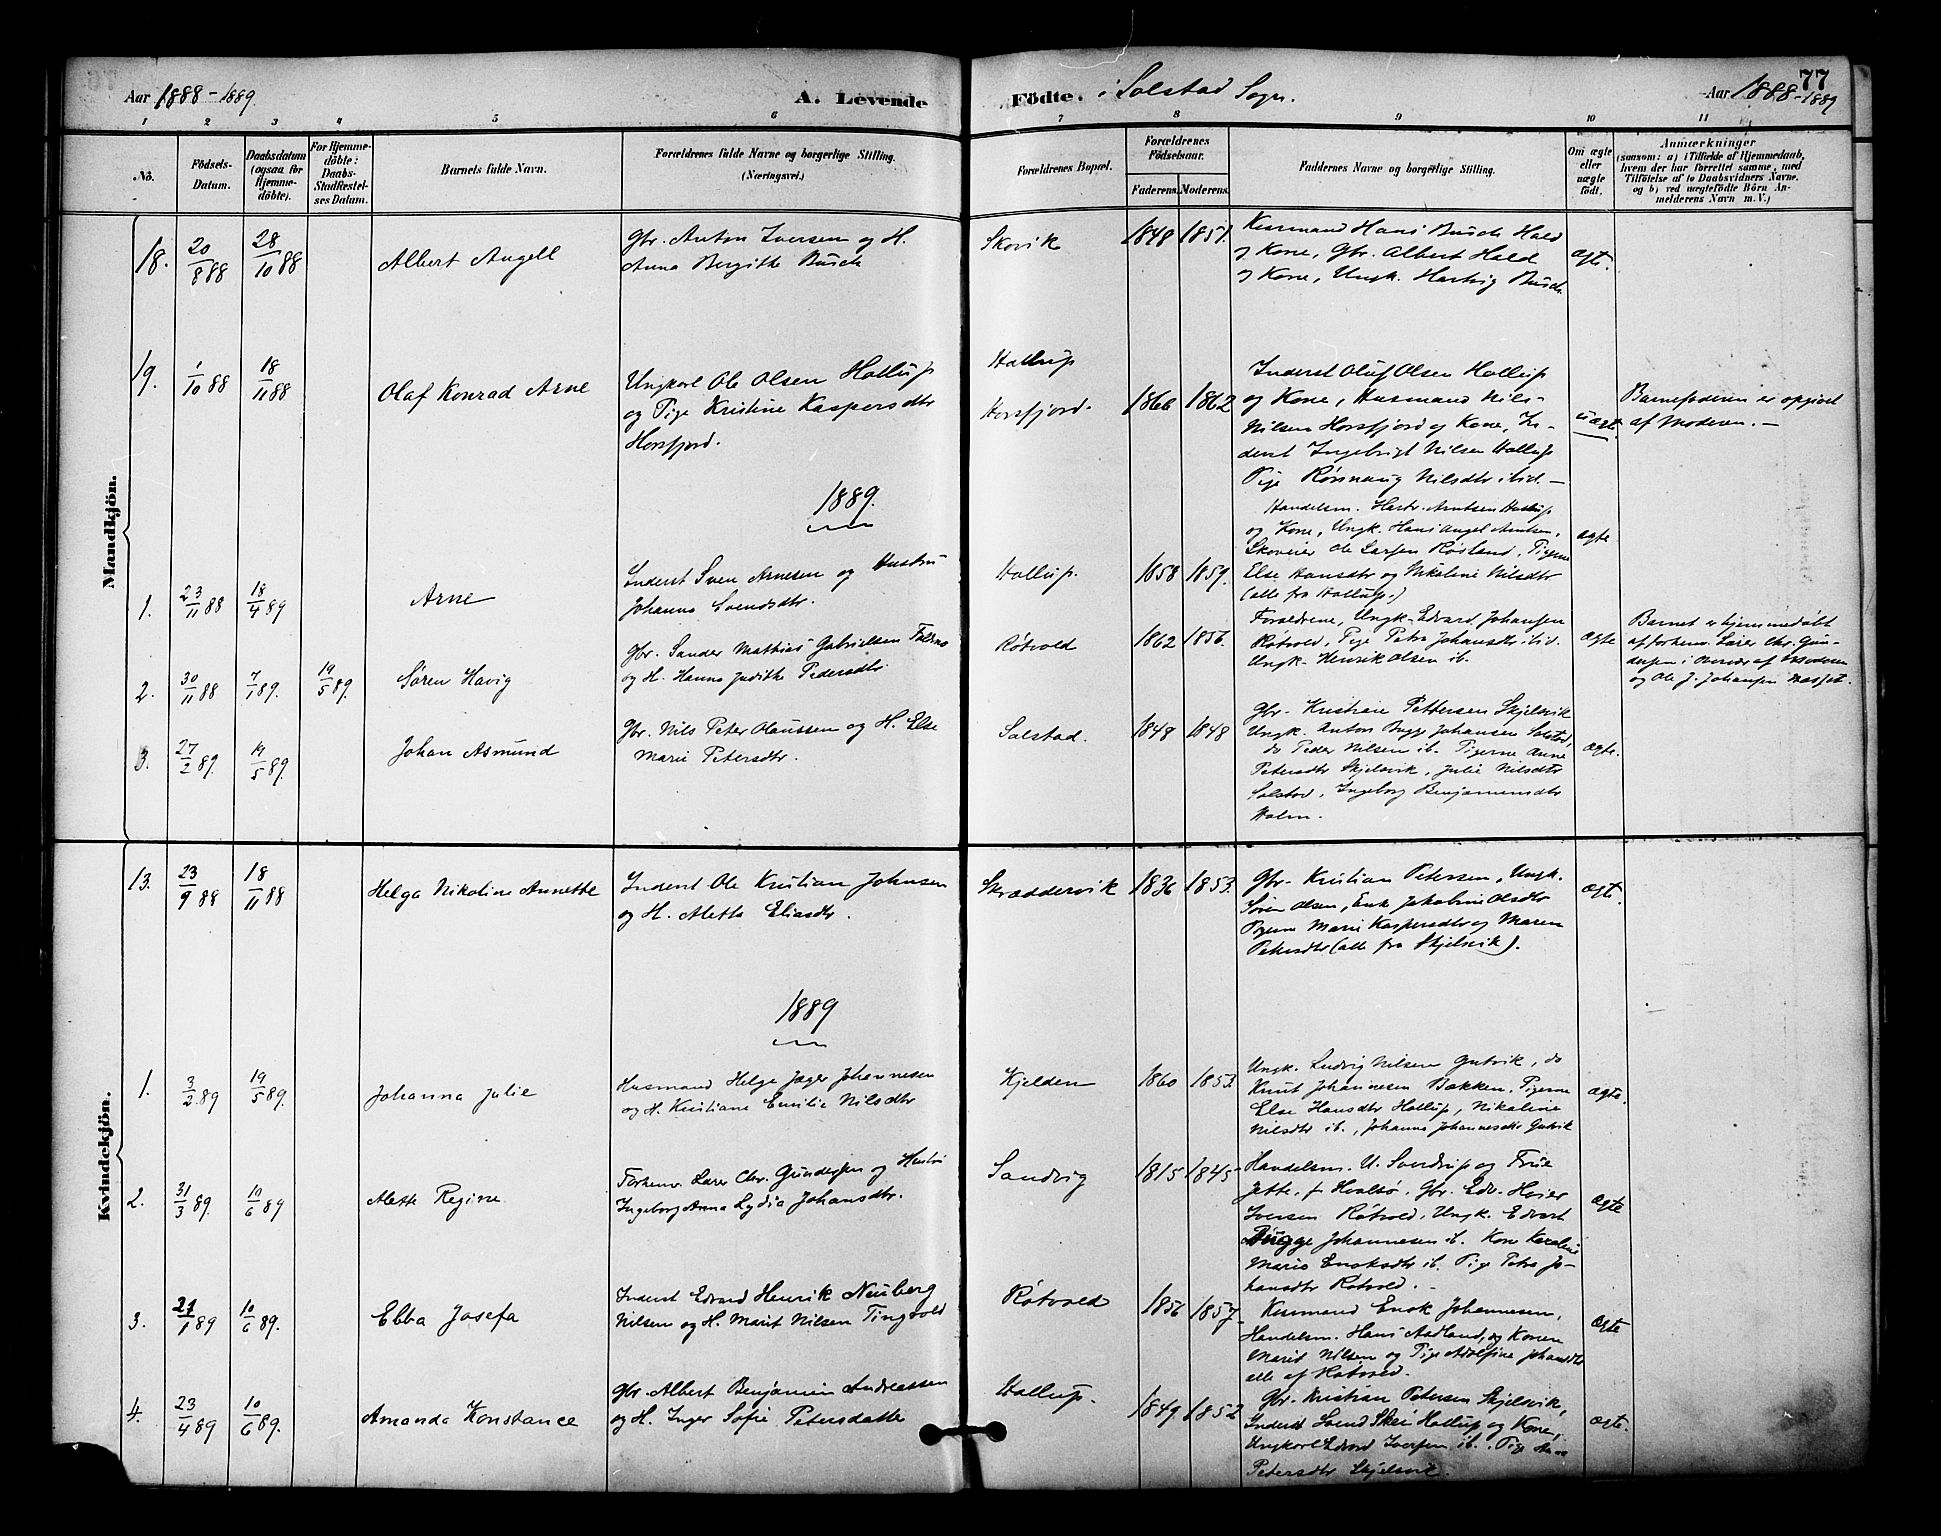 Aar 1888-1889.
A. Levende
Födte. i Solstad Sogn.
Aar 1888-1889
77
1 2 3 4 5 6 7 8 9 10 11
No.
Födsels-
Datum.
Daabsdatum
(ogsaa for
Hjemme-
döbte).
For Hjemme-
döbte:
Daabs-
Stadfæstel-
ses Datum.
Barnets fulde Navn.
Forældrenes fulde Navne og borgerlige Stilling.
(Næringsvei.)
Forældrenes Bopæl.
Forældrenes
Födselsaar.
Faderens. Moderens.
Faddernes Navne og borgerlige Stilling.
Om ægte
eller
uægte
födt.
Anmærkninger
(saasom: a) i Tilfælde af Hjemmedaab,
hvem der har forrettet samme, med
Tilföielse af to Daabsvidners Navne,
og b) ved uægtefödte Börn An-
melderens Navn m. V.)
Mandkjön.
18. 20/8 88 28/10 88 Albert Angell
Gbr. Anton Iversen og H.
Anna Bergitte Busch
Skovik 1848 1851.
Kirremand Hans Busch Hald
og Kone, Gbr. Albert Hald
og Kone, Ungk. Hartvig Busch.
ægte.
19. 1/10 88 18/11 88 Olaf Konrad Arne
Ungkarl Ole Olsen Hollup
og Pige Kristine Kaspersdtr
Horsfjord.
Hollup
Horsfjord. 1866 1862
Inderst Oluf Olsen Hollup
og Kone, Husmand Nils
Nilsen Horsfjord og Kone, In-
derst Ingebrigt Nilsen Hollup
Pige Rönnaug Nilsdtr ibid. -
uægte.
Barnefaderen er opgivet
af Moderen. -
1889.
1. 23/11 88 18/4 89 Arne
Inderst Sven Arnesen og Hustru
Johanna Svendsdtr.
Hollup. 1858 1859.
Handelsm. Hartv. Arntsen Hollup
og Kone, Ungk. Hans Angel Arntsen,
Skoveier Ole Larsen Røsland, Pigerne
Else Hansdtr og Nikoline Nilsdtr
(alle fra Hollup.)
ægte
2. 30/11 88 7/1 89. 19/5 89. Søren Havig
Gbr. Sander Mathias Gabrielsen
og H. Hanna Judithe Pedersdtr.
Røtvold 1862 1856.
Forældrene, Ungk. Edvard Johansen
Røtvold, Pige Petra Johansdtr ibid.
Ungk. Henrik Olsen ib.
ægte
Barnet er hjemmedøbt
af forhenv. Lærer Chr. Gun-
dersen i Overvær af Moderen
og Ole J. Johansen
3. 27/2 89. 19/5 89. Johan Asmund
Gbr. Nils Peter Olaussen og H. Else
Marie Petersdtr.
Solstad. 1848 1848
Gbr. Kristian Pettersen Skjelsvik
Ungk. Anton Bugge Johansen Solstad,
do Peder Nilsen ib. Pigerne Anne
Petersdtr Skjelsvik, Julie Nilsdtr
Solstad, Ingeborg Benjaminsdtr
Holm.
ægte.
Kvindekjön.
13. 23/9 88 18/11 88 Helga Nikoline Annette
Inderst Ole Kristian Johnsen
og H. Aletta Eliasdtr.
Skræddervik 1836 1853.
Gbr. Kristian Petersen, Ungk.
Søren Olsen, Enk. Jakobine Olsdtr
Pigerne Marie Kaspersdtr og Maren
Petersdtr (alle fra Skjelsvik).
ægte.
1889
1. 3/2 89 19/5 89. Johanna Julie
Husmand Helge Jæger Johannesen
og H. Kristiane Emilie Nilsdtr
Kjelden 1860 1853.
Ungk. Ludvig Nilsen Gutvik, do
Knut Johannesen Bakken. Pigerne
Else Hansdtr Hollup, Nikoline
Nilsdtr ib., Johanna Johannesdtr Gutvik
ægte.
2. 31/3 89. 10/6 89 Alette Regine
Forhenv. Lærer Chr. Gundersen og Hustru
Ingeborg Anna Lydia Johansdtr.
Sandvig 1815 1845
Handelsm. U. Sverdrup og Frue
Jette, f. Hvalsø. Gbr. Edv. Hoier
Iversen Røtvold, Ungk. Edvart
Bugge Johannesen ib. Kone Karoline
Marie Enoksdtr ib. Pige Petra Jo-
hansdtr Røtvold.
ægte
3. 27/1 89 10/6 89. Ebba Josefa
Inderst Edvard Henrik Neuberg
Nilsen og H. Marit Nilsen Tingvold
Røtvold 1856 1857
Kirremand Enok Johannesen,
Handelsm. Hans Aadland, og Konen
Marit Nilsen og Pige Adolfine Johansdtr
alle af Røtvold.
ægte
4. 23/4 89 10/6 89. Amanda Konstance
Gbr. Albert Benjamin Andreassen
og H. Inger Sofie Petersdatter
Hollup. 1849 1852
Gbr. Kristian Petersen Skjelsvik,
Inderst Svend Skei Hollup og Kone,
Ungkarl Edvard Iversen ib. Pige
Petersdtr Skjelsvik.
ægte.